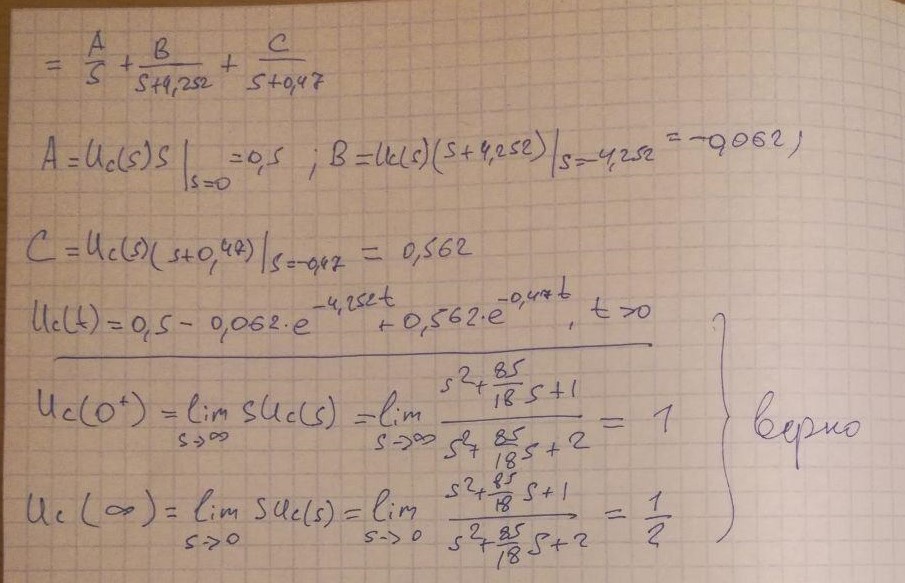 = A/S + B/(S+4,252) + C/(S+0,47)
A = Uc(s)S |s=0 = 0,5 ; B = Uc(s)(S+4,252) |s=-4,252 = -0,062,
C = Uc(s)(s+0,47) |s=-0,47 = 0,562
Uc(t) = 0,5 - 0,062·e^{-4,252t} + 0,562·e^{-0,47t}, t>0
Uc(0⁺) = lim s→∞ SUc(s) = lim s→∞ (s²+85/18 s+1)/(s²+85/18 s+2) = 1
верно
Uc(∞) = lim s→0 SUc(s) = lim s→0 (s²+85/18 s+1)/(s²+85/18 s+2) = 1/2